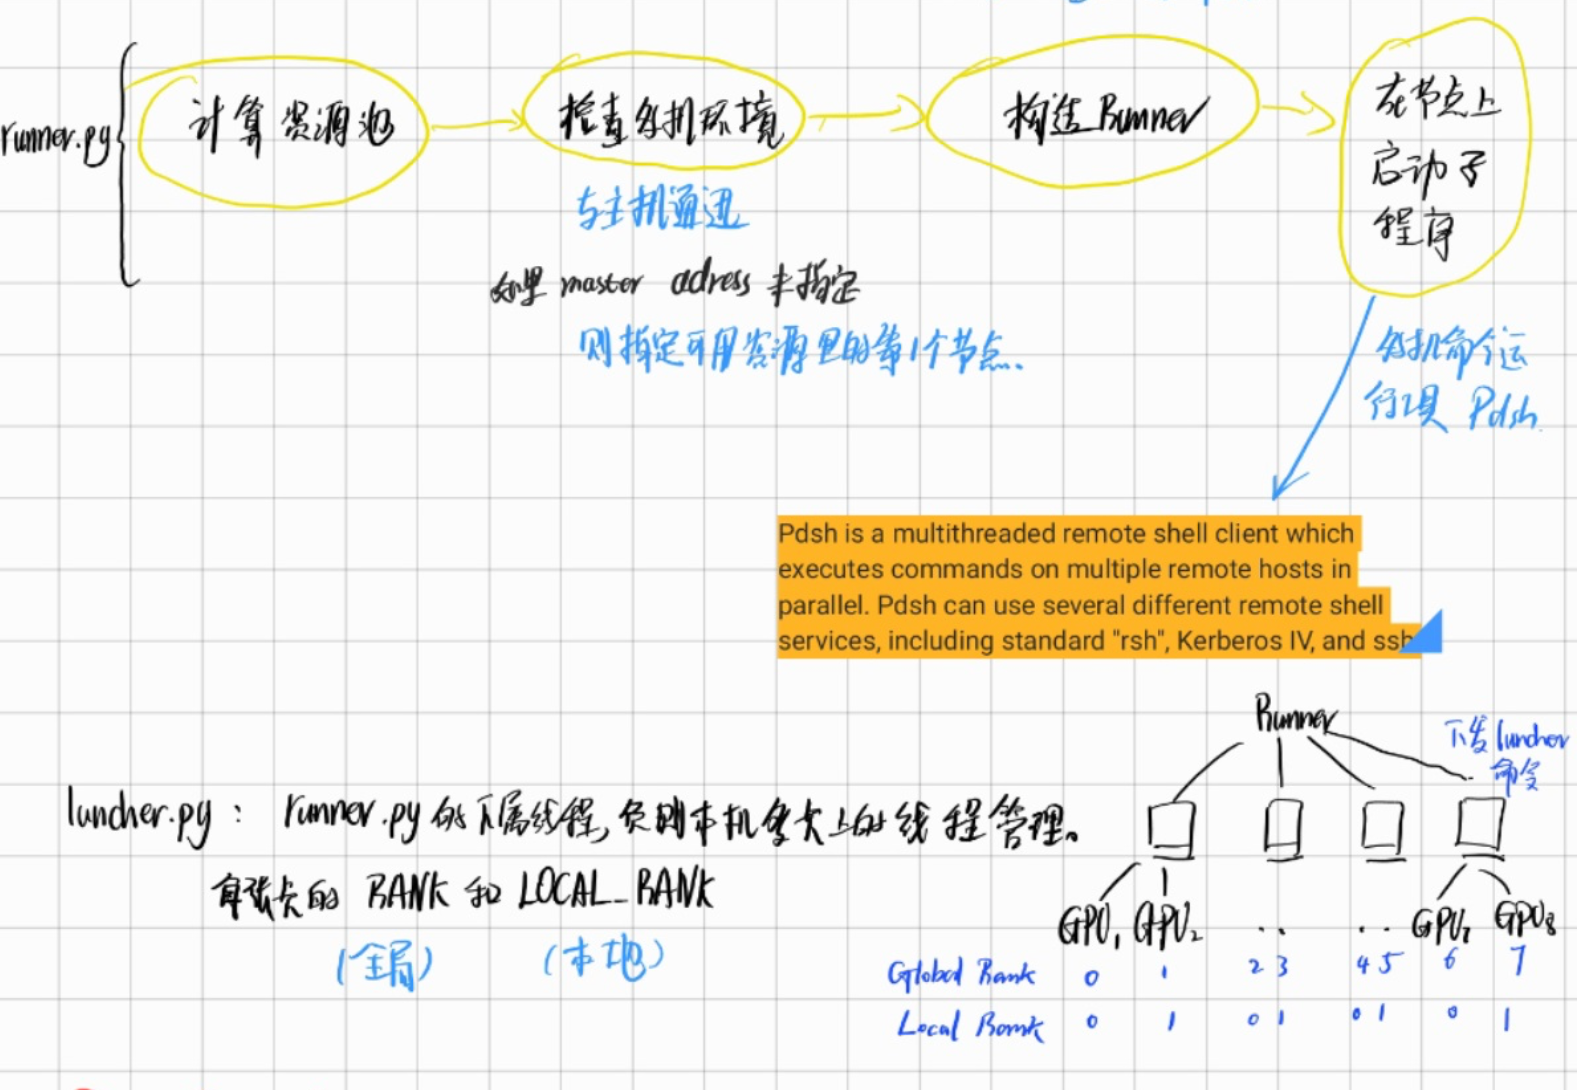 runner.py
计算资源池
检查多机环境
构造Runner
在节点上
启动子
程序
与主机通迅
如果 master adress 未指定
则指定可用资源里的第1个节点.
多机命令运
行工具 Pdsh.
Pdsh is a multithreaded remote shell client which
executes commands on multiple remote hosts in
parallel. Pdsh can use several different remote shell
services, including standard "rsh", Kerberos IV, and ssh
Runner
下发luncher
命令
luncher.py: runner.py的下属线程,负责本机多卡上的线程管理。
每张卡的 RANK 和 LOCAL_RANK
(全局) (本地)
GPU1 GPU2 .. .. GPU7 GPU8
Global Rank 0 1 2 3 4 5 6 7
Local Rank 0 1 0 1 0 1 0 1